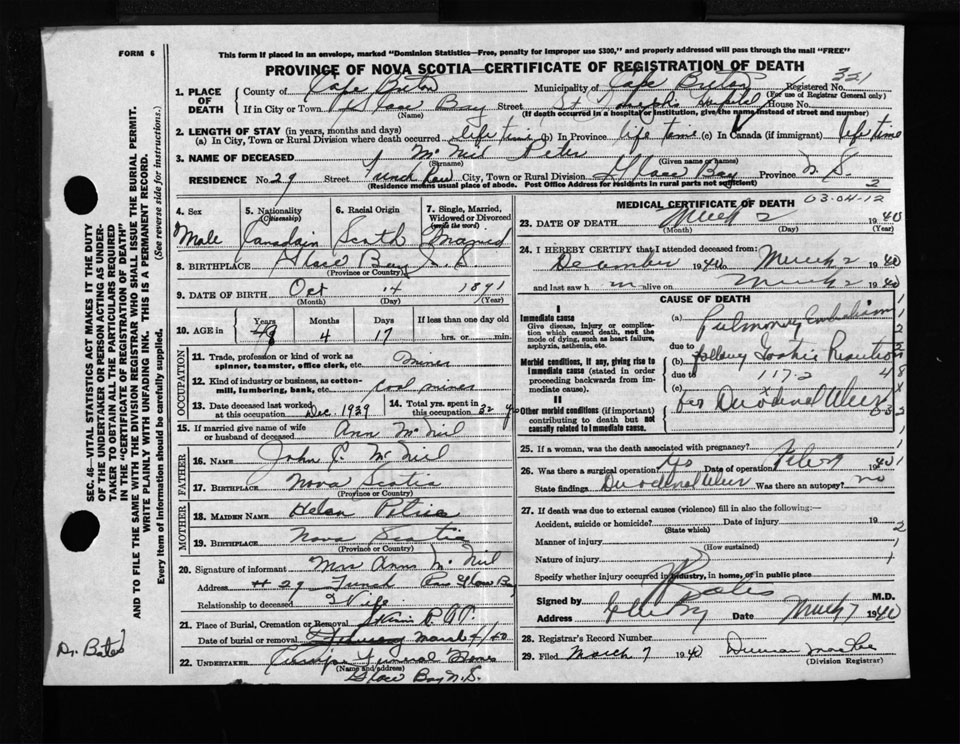 FORM 6
This form if placed in an envelope, marked "Dominion Statistics—Free, penalty for improper use $300," and properly addressed will pass through the mail "FREE"
PROVINCE OF NOVA SCOTIA—CERTIFICATE OF REGISTRATION OF DEATH
321
1. PLACE OF DEATH County of Cape Breton Municipality of Cape Breton Registered No.
(For use of Registrar General only)
If in City or Town Glace Bay Street St Josephs Hospital House No.
(Name) (If death occurred in a hospital or institution, give the name instead of street and number)
2. LENGTH OF STAY (in years, months and days)
(a) In City, Town or Rural Division where death occurred life time (b) In Province life time (c) In Canada (if immigrant) life time
3. NAME OF DECEASED McNeil Peter
(Surname) (Given name or names)
RESIDENCE No 29 Street Row City, Town or Rural Division Glace Bay Province N.S.
(Residence means usual place of abode. Post Office Address for residents in rural parts not sufficient)
2
4. Sex Male
5. Nationality (Citizenship) Canadain
6. Racial Origin Scoth
7. Single, Married, Widowed or Divorced (write the word) Married
8. BIRTHPLACE Glace Bay N.S
(Province or Country)
9. DATE OF BIRTH Oct 14 1891
(Month) (Day) (Year)
10. AGE in Years Months Days If less than one day old
48 4 17 hrs. or min.
OCCUPATION
11. Trade, profession or kind of work as spinner, teamster, office clerk, etc. miner
12. Kind of industry or business, as cotton-mill, lumbering, bank, etc. Coal mines
13. Date deceased last worked at this occupation Dec. 1939 14. Total yrs. spent in this occupation 32 yrs
15. If married give name of wife or husband of deceased Ann McNeil
FATHER
16. NAME John McNeil
17. BIRTHPLACE Nova Scotia
(Province or Country)
MOTHER
18. MAIDEN NAME Helen
19. BIRTHPLACE Nova Scotia
(Province or Country)
20. Signature of informant Mrs Ann McNeil
Address # 29 Row Glace Bay
Relationship to deceased Wife
21. Place of Burial, Cremation or Removal
Date of burial or removal March 4/40
22. UNDERTAKER Funeral Home
(Name and address)
Glace Bay N.S.
MEDICAL CERTIFICATE OF DEATH
03-04-12
23. DATE OF DEATH March 2 1940
(Month) (Day) (Year)
24. I HEREBY CERTIFY that I attended deceased from:
December 1940 to March 2 1940
and last saw h m alive on March 2 1940
CAUSE OF DEATH
I
Immediate cause
Give disease, injury or complication which caused death, not the mode of dying, such as heart failure, asphyxia, asthenia, etc.
(a) Pulmonary Embolism
due to
Morbid conditions, if any, giving rise to immediate cause (stated in order proceeding backwards from immediate cause).
(b) following Gastric Resection
due to 117.2
(c) for Duodenal Ulcer
II
Other morbid conditions (if important) contributing to death but not causally related to immediate cause.
25. If a woman, was the death associated with pregnancy?
26. Was there a surgical operation? Yes Date of operation Feb 1940
State findings Duodenal Ulcer Was there an autopsy? no
27. If death was due to external causes (violence) fill in also the following:—
Accident, suicide or homicide? Date of injury 19
(State which)
Manner of injury
(How sustained)
Nature of injury
Specify whether injury occurred in industry, in home, or in public place
Signed by Bates M.D.
Address Date March 7 1940
28. Registrar's Record Number
29. Filed March 7 1940 Duncan
(Division Registrar)
SEC. 46—VITAL STATISTICS ACT MAKES IT THE DUTY OF THE UNDERTAKER OR PERSON ACTING AS UNDERTAKER TO OBTAIN ALL THE PARTICULARS REQUIRED IN THE "CERTIFICATE OF REGISTRATION OF DEATH" AND TO FILE THE SAME WITH THE DIVISION REGISTRAR WHO SHALL ISSUE THE BURIAL PERMIT.
WRITE PLAINLY WITH UNFADING INK. THIS IS A PERMANENT RECORD.
Every item of information should be carefully supplied. (See reverse side for instructions.)
Dr. Bates